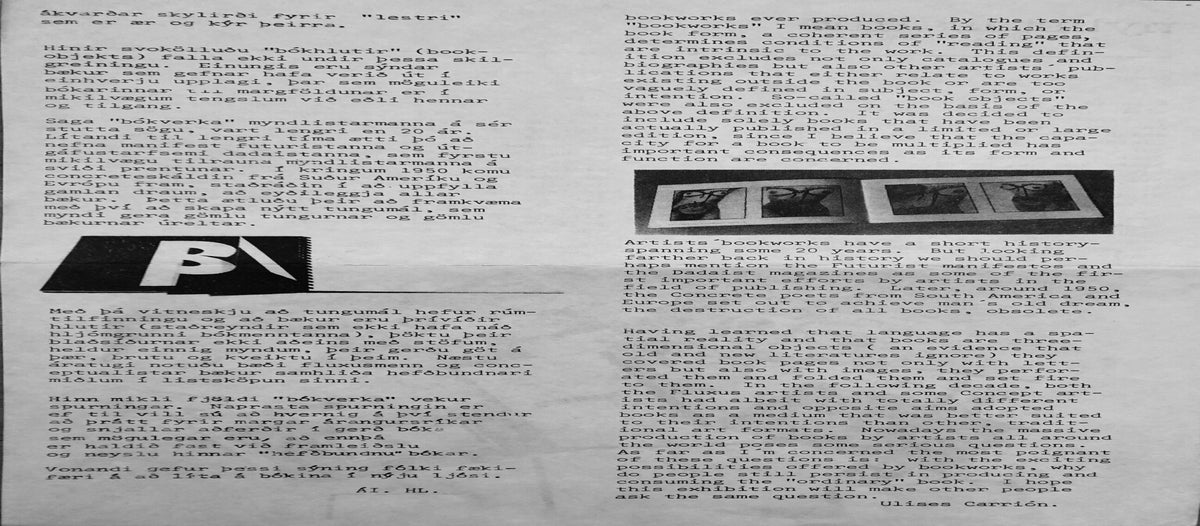 ákvarðar skylirði fyrir "lestri"
sem er ær og kýr þeirra.
Hinir svokölluðu "bókhlutir" (book-
objekts) falla ekki undir þessa skil-
greiningu. Einungis eru sýndar
bækur sem gefnar hafa verið út í
einhverju upplagi, þar sem möguleiki
bókarinnar til margföldunar er í
mikilvægum tengslum við eðli hennar
og tilgang.
Saga "bókverka" myndlistarmanna á sér
stutta sögu, vart lengri en 20 ár.
Lítandi til lengri tíma ætti þó að
nefna manifest futuristanna og út-
gáfustarfsemi dadaistanna, sem fyrstu
mikilvægu tilrauna myndlistarmanna á
sviði prentunar. Í kringum 1950 komu
concreteskáldin frá Suður Ameríku og
Evrópu fram, staðráðin í að uppfylla
gamlan draum, að eyðileggja allar
bækur. Þetta ætluðu þeir að framkvæma
með því að skapa nýtt tungumál, sem
myndi gera gömlu tungurnar og gömlu
bækurnar úreltar.
Með þá vitneskju að tungumál hefur rúm-
tilfinningu og að bækur eru þrívíðir
hlutir (staðreyndir sem ekki hafa náð
hljómgrunni bókmenntanna), þöktu þeir
blaðsíðurnar ekki aðeins með stöfum,
heldur einnig myndum, þeir gerðu göt á
þær, brutu og kveiktu í þeim. Næstu
áratugi notuðu bæði fluxusmenn og conc-
eptualistar bækur samhliða hefðbundnari
miðlum í listsköpun sinni.
Hinn mikli fjöldi "bókverka" vekur
spurningar. Naprasta spurningin er
ef til vill sú að hvernig á því stendur
að þrátt fyrir margar árangursríkar
og snjallar aðferðir í gerð bóka
sem mögulegar eru, að ennþá
er haldið fast við framleiðslu
og neyslu hinnar "hefðbundnu" bókar.
Vonandi gefur þessi sýning fólki fæki-
færi á að líta á bókina í nýju ljósi.
ÁI. HL.
bookworks ever produced. By the term
"bookworks" I mean books, in which the
book form, a coherent series of pages,
determines conditions of "reading" that
are intrinsic to the work. This defin-
ition excludes not only catalogues and
biographies but also other artists pub-
lications that either relate to works
existing outside the book or are too
vaguely defined in subject, form, or
intention. So-called "book objects"
were also excluded on the basis of the
above definition. It was decided to
include solely books that have been
actually published in a limited or large
edition, since I believe that the capa-
city for a book to be multiplied has
important consequences as its form and
function are concerned.
Artists´bookworks have a short history-
spanning some 20 years. But looking
farther back in history we should per-
haps mention the Futurist manifestos and
the Dadaist magazines as some of the fir-
st important efforts by artists in the
field of publishing. Later, around 1950,
the Concrete poets from South America and
Europe set out to achieve man´s old dream,
the destruction of all books, obsolete.
Having learned that language has a spa-
tial reality and that books are three-
dimensional objects ( an evidence that
old and new literatures ignore) they
covered book pages not only with lett-
ers but also with images, they perfor-
ated them and folded them and set fire
to them. In the following decade, both
the Fluxus artists and some Concept art-
ists had albeit with totally different
intentions and opposite aims adopted
books as a medium that was better suited
to their intentions than other, tradit-
ional art formats. Nowadays the massive
production of books by artists all around
the world poses some serious questions.
As far as I´m concerned the most poignant
of these questions is: with the exciting
possibilities offered by bookworks, why
do people still persist in producing and
consuming the "ordinary" book. I hope
this exhibition will make other people
ask the same question.
Ulises Carrión.